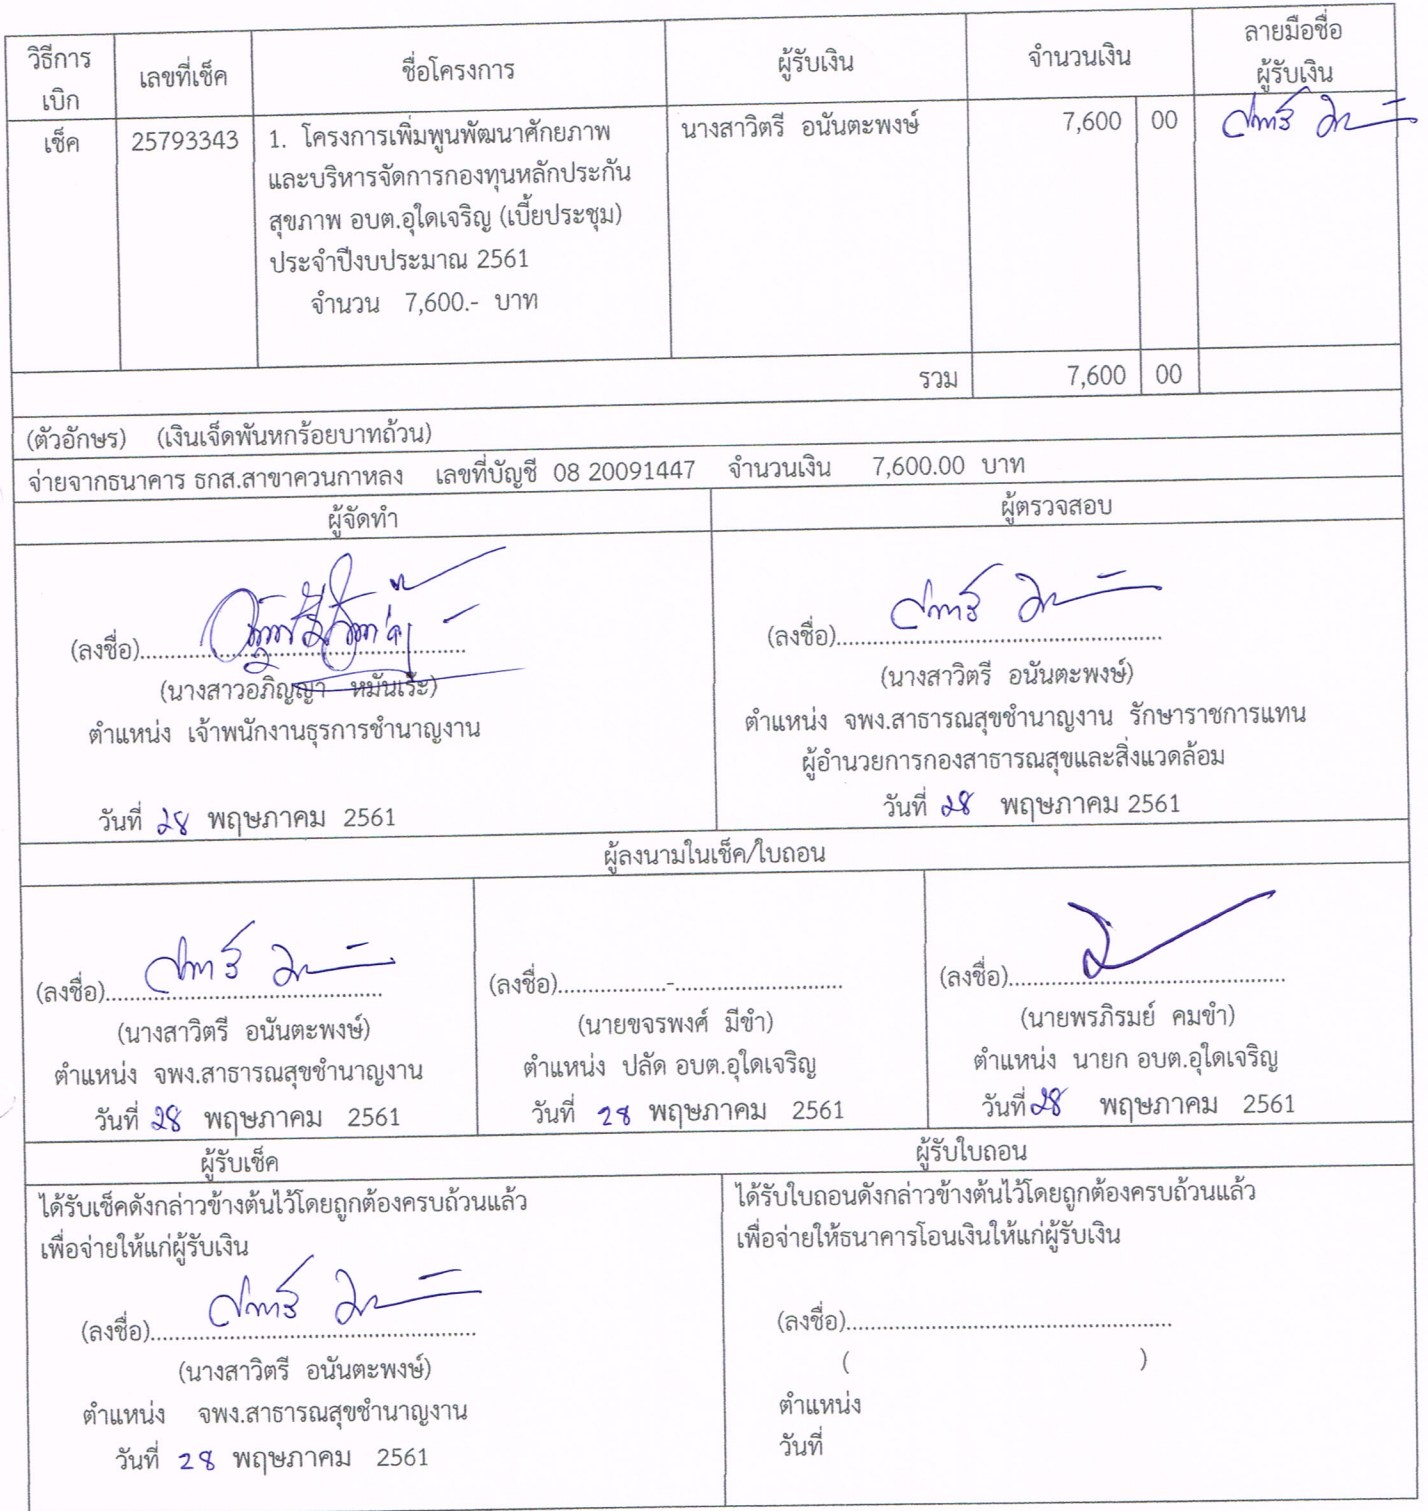 วิธีการ
เบิก
เลขที่เช็ค
ชื่อโครงการ
ผู้รับเงิน
จำนวนเงิน
ลายมือชื่อ
ผู้รับเงิน
เช็ค 25793343 1. โครงการเพิ่มพูนพัฒนาศักยภาพ นางสาวิตรี อนันตะพงษ์ 7,600 00
และบริหารจัดการกองทุนหลักประกัน
สุขภาพ อบต.อุใดเจริญ (เบี้ยประชุม)
ประจำปีงบประมาณ 2561
จำนวน 7,600.- บาท
รวม 7,600 00
(ตัวอักษร) (เงินเจ็ดพันหกร้อยบาทถ้วน)
จ่ายจากธนาคาร ธกส.สาขาควนกาหลง เลขที่บัญชี 08 20091447 จำนวนเงิน 7,600.00 บาท
ผู้จัดทำ
(ลงชื่อ)................................................
(นางสาวอภิญญา หมันเร๊ะ)
ตำแหน่ง เจ้าพนักงานธุรการชำนาญงาน
วันที่ 28 พฤษภาคม 2561
ผู้ตรวจสอบ
(ลงชื่อ)................................................
(นางสาวิตรี อนันตะพงษ์)
ตำแหน่ง จพง.สาธารณสุขชำนาญงาน รักษาราชการแทน
ผู้อำนวยการกองสาธารณสุขและสิ่งแวดล้อม
วันที่ 28 พฤษภาคม 2561
ผู้ลงนามในเช็ค/ใบถอน
(ลงชื่อ).........................................
(นางสาวิตรี อนันตะพงษ์)
ตำแหน่ง จพง.สาธารณสุขชำนาญงาน
วันที่ 28 พฤษภาคม 2561
(ลงชื่อ)................-.........................
(นายขจรพงศ์ มีขำ)
ตำแหน่ง ปลัด อบต.อุใดเจริญ
วันที่ 28 พฤษภาคม 2561
(ลงชื่อ).........................................
(นายพรภิรมย์ คมขำ)
ตำแหน่ง นายก อบต.อุใดเจริญ
วันที่ 28 พฤษภาคม 2561
ผู้รับเช็ค
ได้รับเช็คดังกล่าวข้างต้นไว้โดยถูกต้องครบถ้วนแล้ว
เพื่อจ่ายให้แก่ผู้รับเงิน
(ลงชื่อ)................................................
(นางสาวิตรี อนันตะพงษ์)
ตำแหน่ง จพง.สาธารณสุขชำนาญงาน
วันที่ 28 พฤษภาคม 2561
ผู้รับใบถอน
ได้รับใบถอนดังกล่าวข้างต้นไว้โดยถูกต้องครบถ้วนแล้ว
เพื่อจ่ายให้ธนาคารโอนเงินให้แก่ผู้รับเงิน
(ลงชื่อ)................................................
( )
ตำแหน่ง
วันที่